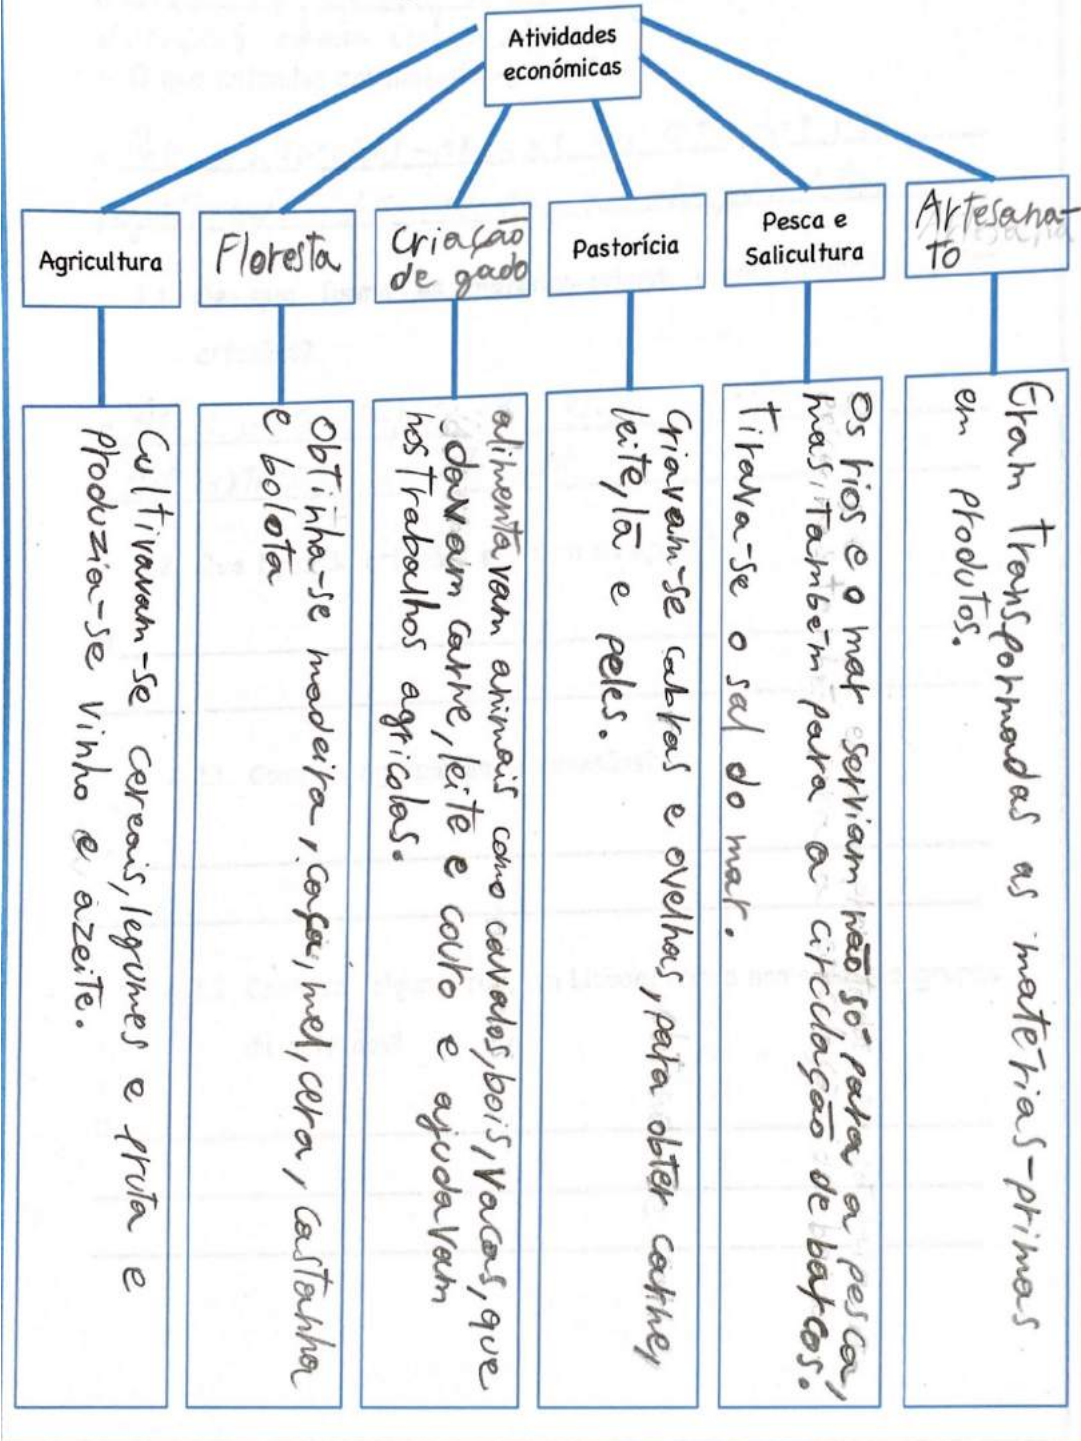 Atividades
económicas
Agricultura
Floresta
Criação
de gado
Pastorícia
Pesca e
Salicultura
Artesana-
to
Cultivavam-se cereais, legumes e fruta e
produzia-se vinho e azeite.
Obtinha-se madeira, caça, mel, cera, castanha
e bolota
alimentavam animais como cavalos, bois, vacas, que
davam carne, leite e couro e ajudavam
nos trabalhos agrícolas.
Criavam-se cabras e ovelhas, para obter carne,
leite, lã e peles.
Os rios e o mar serviam não só para a pesca,
mas também para a circulação de barcos.
Tirava-se o sal do mar.
Eram transformadas as matérias-primas
em produtos.